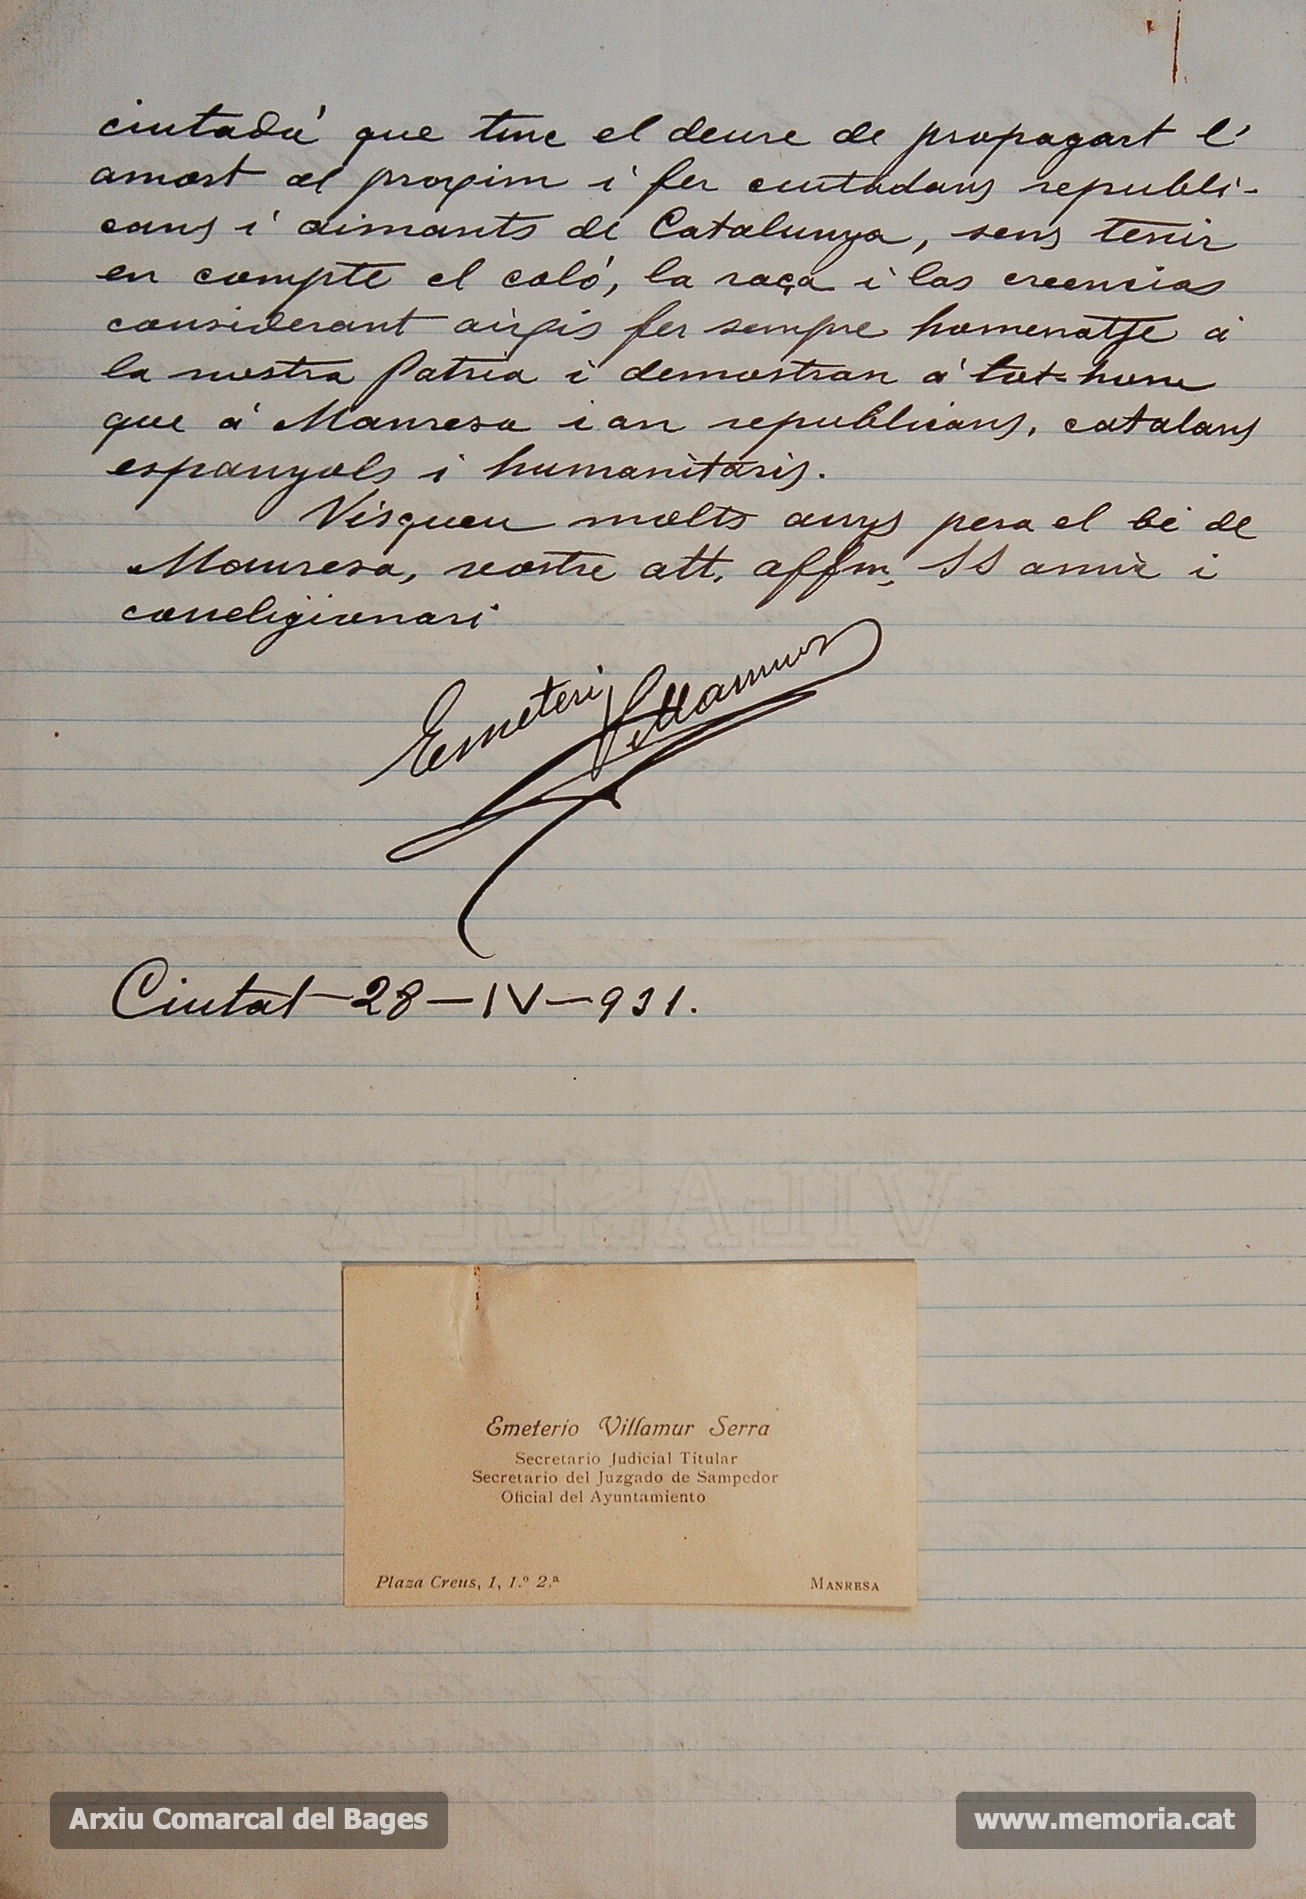 ciutadá que tinc el deure de propagart l'
amort al proxim i fer ciutadans republi-
cans i aimants de Catalunya, sens tenir
en compte el coló, la raça i las creencias
considerant aixis fer sempre homenatje á
la nostra Patria i demostran á tot-hom
que á Manresa i an republicans, catalans
espanyols i humanitaris.
Visqueu molts anys pera el bé de
Manresa, vostre att. affm. SS amic i
correligionari
Emeteri Villamur
Ciutat-28-IV-931.
VILASECA
Emeterio Villamur Serra
Secretario Judicial Titular
Secretario del Juzgado de Sampedor
Oficial del Ayuntamiento
Plaza Creus, 1, 1.º 2.ª MANRESA
Arxiu Comarcal del Bages www.memoria.cat